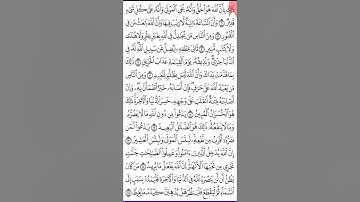 ذَٰلِكَ بِأَنَّ ٱللَّهَ هُوَ ٱلْحَقُّ وَأَنَّهُۥ يُحْىِ ٱلْمَوْتَىٰ وَأَنَّهُۥ عَلَىٰ كُلِّ شَىْءٍ
قَدِيرٌ ٦ وَأَنَّ ٱلسَّاعَةَ ءَاتِيَةٌ لَّا رَيْبَ فِيهَا وَأَنَّ ٱللَّهَ يَبْعَثُ مَن فِى
ٱلْقُبُورِ ٧ وَمِنَ ٱلنَّاسِ مَن يُجَٰدِلُ فِى ٱللَّهِ بِغَيْرِ عِلْمٍ وَلَا هُدًى
وَلَا كِتَٰبٍ مُّنِيرٍ ٨ ثَانِىَ عِطْفِهِۦ لِيُضِلَّ عَن سَبِيلِ ٱللَّهِ لَهُۥ
فِى ٱلدُّنْيَا خِزْىٌ وَنُذِيقُهُۥ يَوْمَ ٱلْقِيَٰمَةِ عَذَابَ ٱلْحَرِيقِ ٩
ذَٰلِكَ بِمَا قَدَّمَتْ يَدَاكَ وَأَنَّ ٱللَّهَ لَيْسَ بِظَلَّٰمٍ لِّلْعَبِيدِ ١٠ وَمِنَ ٱلنَّاسِ
مَن يَعْبُدُ ٱللَّهَ عَلَىٰ حَرْفٍ فَإِنْ أَصَابَهُۥ خَيْرٌ ٱطْمَأَنَّ بِهِۦ وَإِنْ
أَصَابَتْهُ فِتْنَةٌ ٱنقَلَبَ عَلَىٰ وَجْهِهِۦ خَسِرَ ٱلدُّنْيَا وَٱلْءَاخِرَةَ ذَٰلِكَ
هُوَ ٱلْخُسْرَانُ ٱلْمُبِينُ ١١ يَدْعُوا۟ مِن دُونِ ٱللَّهِ مَا لَا يَضُرُّهُۥ
وَمَا لَا يَنفَعُهُۥ ذَٰلِكَ هُوَ ٱلضَّلَٰلُ ٱلْبَعِيدُ ١٢ يَدْعُوا۟ لَمَن
ضَرُّهُۥٓ أَقْرَبُ مِن نَّفْعِهِۦ لَبِئْسَ ٱلْمَوْلَىٰ وَلَبِئْسَ ٱلْعَشِيرُ ١٣
إِنَّ ٱللَّهَ يُدْخِلُ ٱلَّذِينَ ءَامَنُوا۟ وَعَمِلُوا۟ ٱلصَّٰلِحَٰتِ جَنَّٰتٍ
تَجْرِى مِن تَحْتِهَا ٱلْأَنْهَٰرُ إِنَّ ٱللَّهَ يَفْعَلُ مَا يُرِيدُ ١٤ مَن كَانَ
يَظُنُّ أَن لَّن يَنصُرَهُ ٱللَّهُ فِى ٱلدُّنْيَا وَٱلْءَاخِرَةِ فَلْيَمْدُدْ بِسَبَبٍ إِلَى
ٱلسَّمَآءِ ثُمَّ لْيَقْطَعْ فَلْيَنظُرْ هَلْ يُذْهِبَنَّ كَيْدُهُۥ مَا يَغِيظُ ١٥